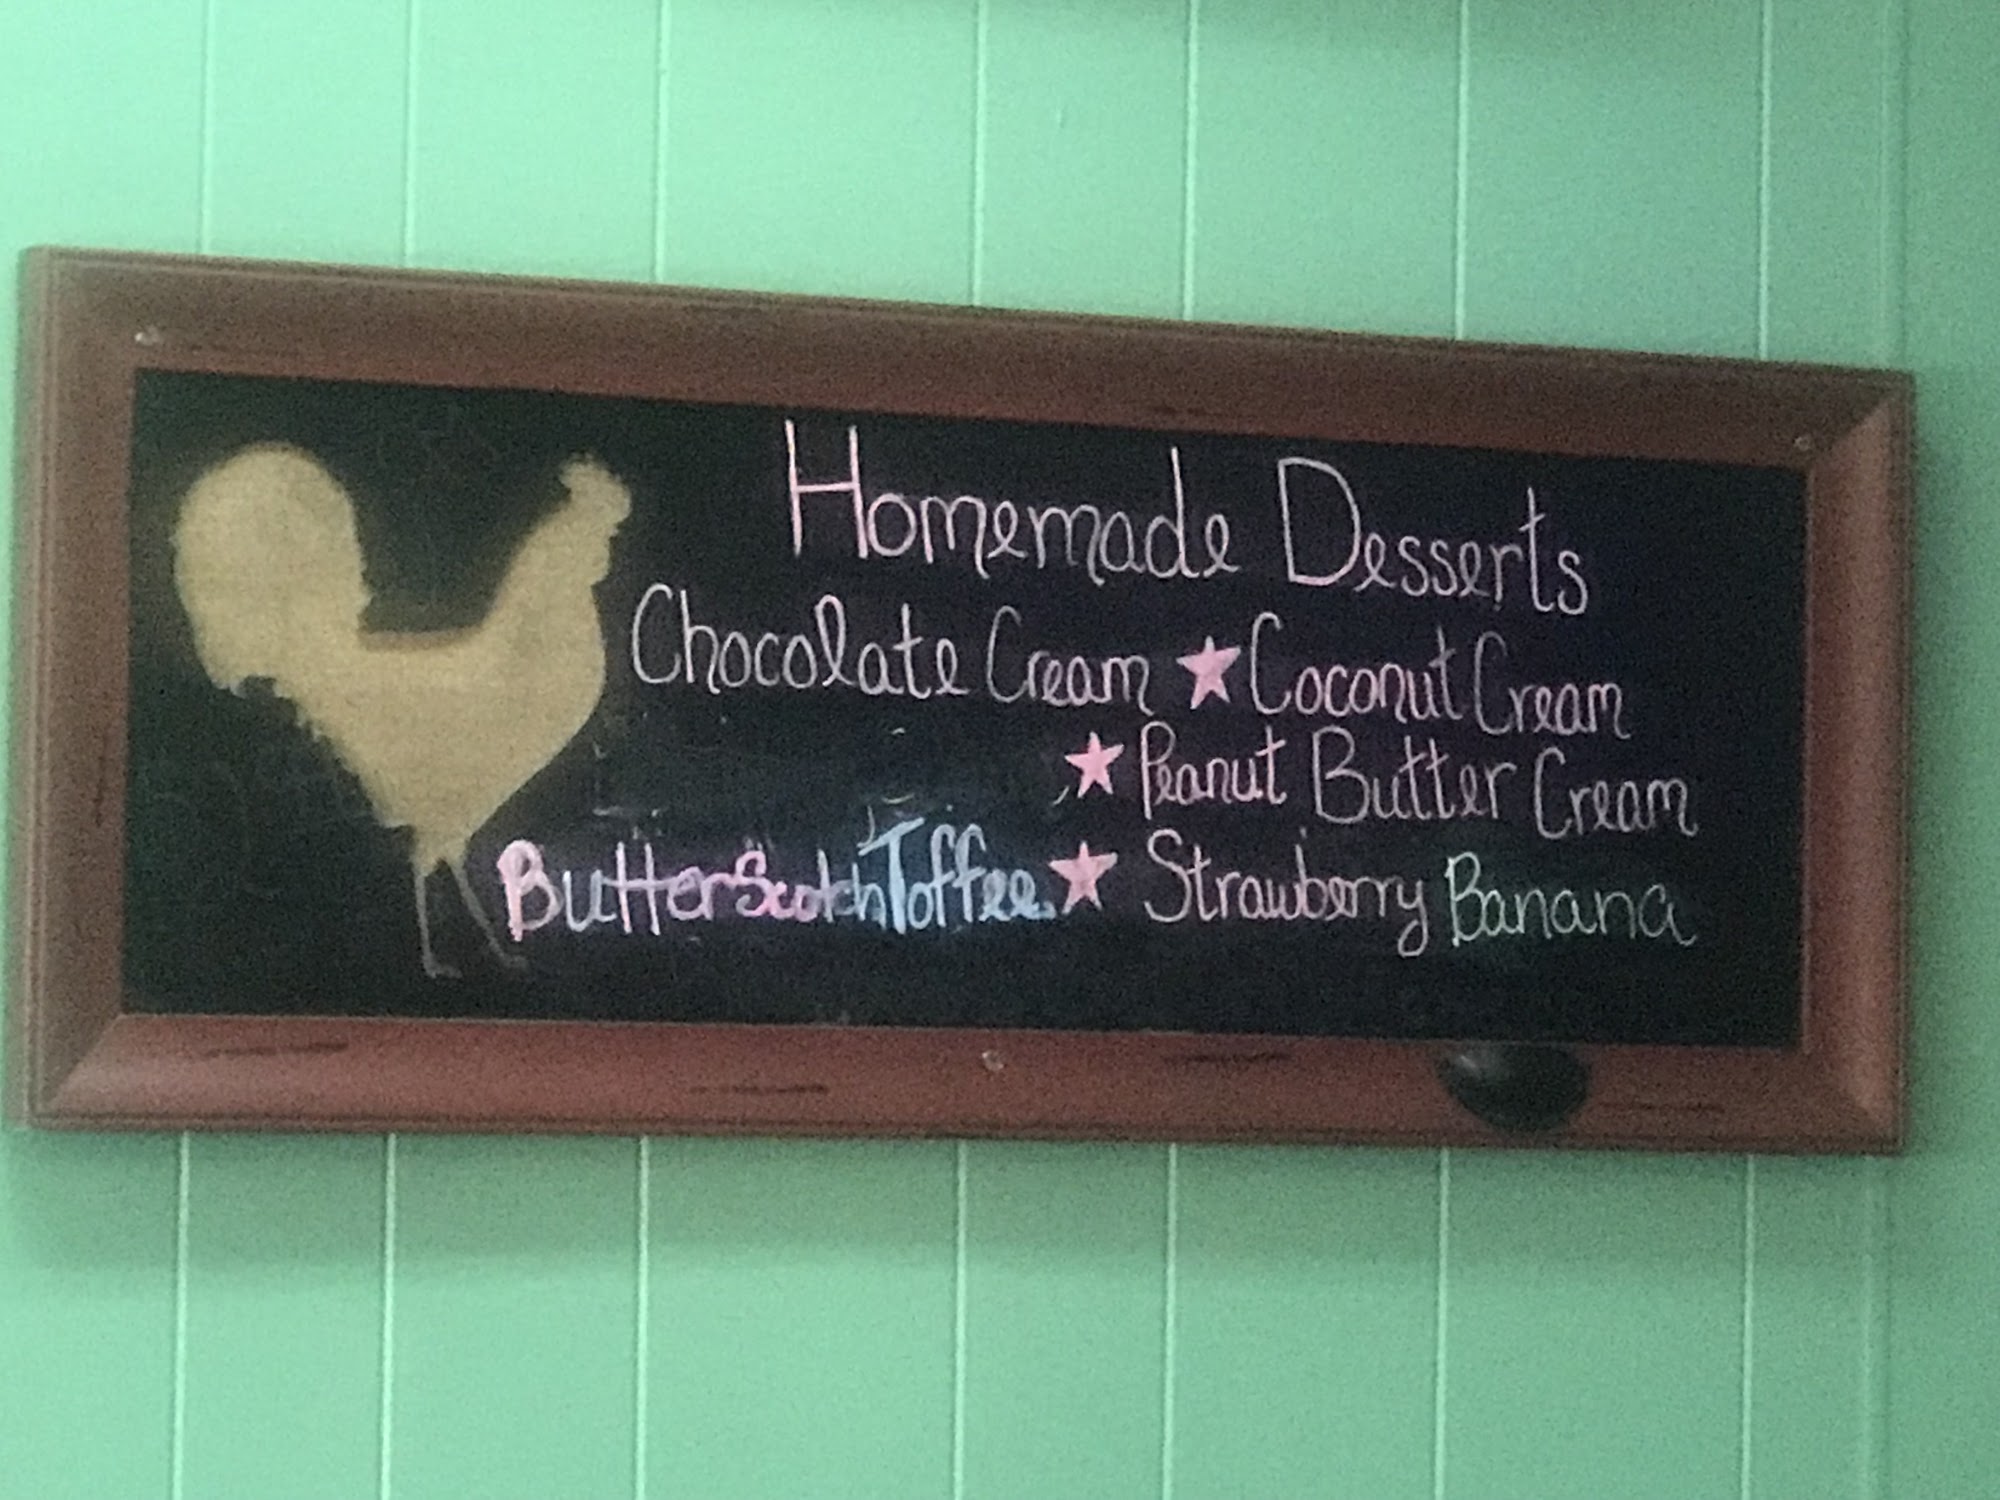 Homemade Desserts
Chocolate Cream ★ Coconut Cream
★ Peanut Butter Cream
ButterScotch Toffee ★ Strawberry Banana